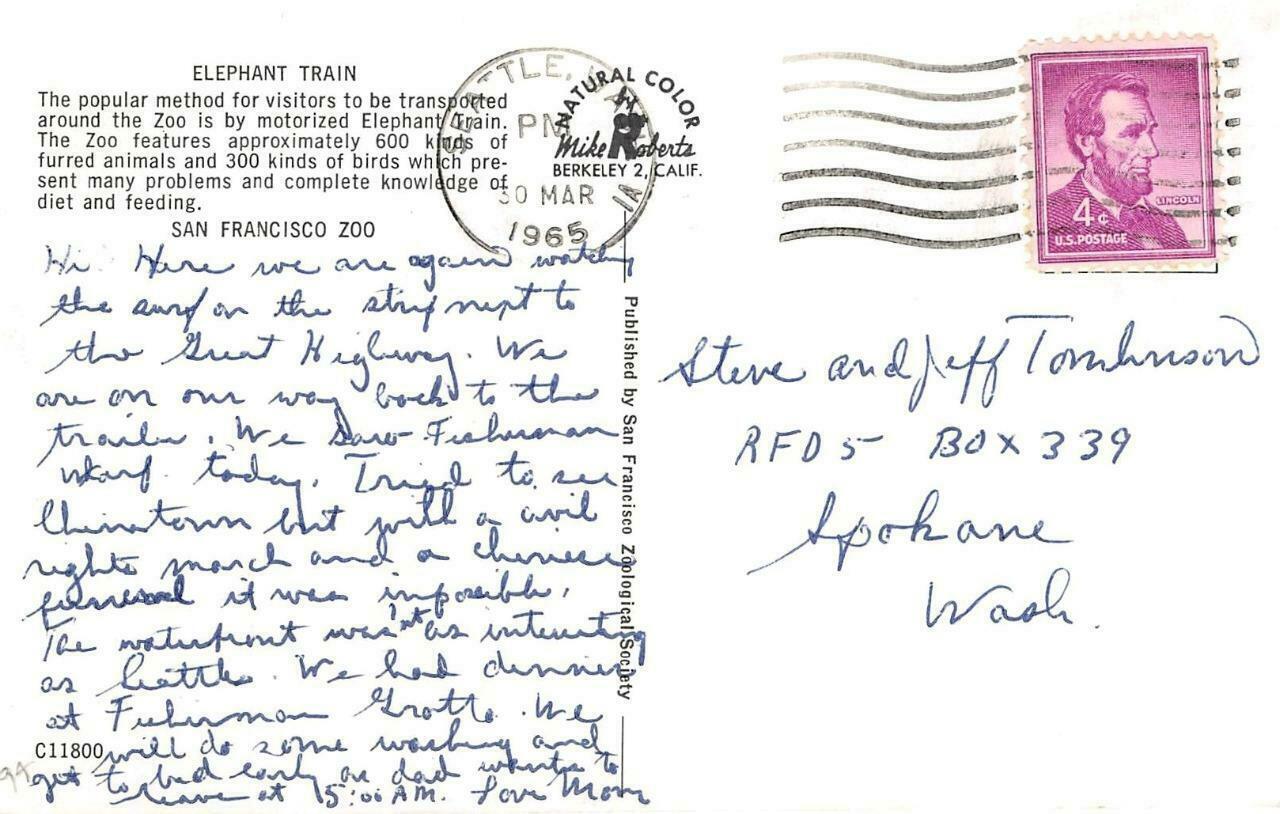 ELEPHANT TRAIN
The popular method for visitors to be transported
around the Zoo is by motorized Elephant Train.
The Zoo features approximately 600 kinds of
furred animals and 300 kinds of birds which pre-
sent many problems and complete knowledge of
diet and feeding.
SAN FRANCISCO ZOO
Hi. Here we are again watching
the surf on the strip next to
the Great Highway. We
are on our way back to the
trailer. We saw Fisherman
wharf today. Tried to see
Chinatown but with a civil
rights march and a chinese
funeral it was impossible.
The waterfront wasn't as interesting
as Seattle. We had dinner
at Fisherman Grotto. We
will do some washing and
get to bed early as dad wants to
leave at 5:00 AM. Love Mom
C11800
94
SEATTLE, WA
PM
30 MAR
1965
NATURAL COLOR
Mike Roberts
BERKELEY 2, CALIF.
Published by San Francisco Zoological Society
LINCOLN
4¢
U.S. POSTAGE
Steve and Jeff Tomlinson
RFD 5 BOX 339
Spokane
Wash.